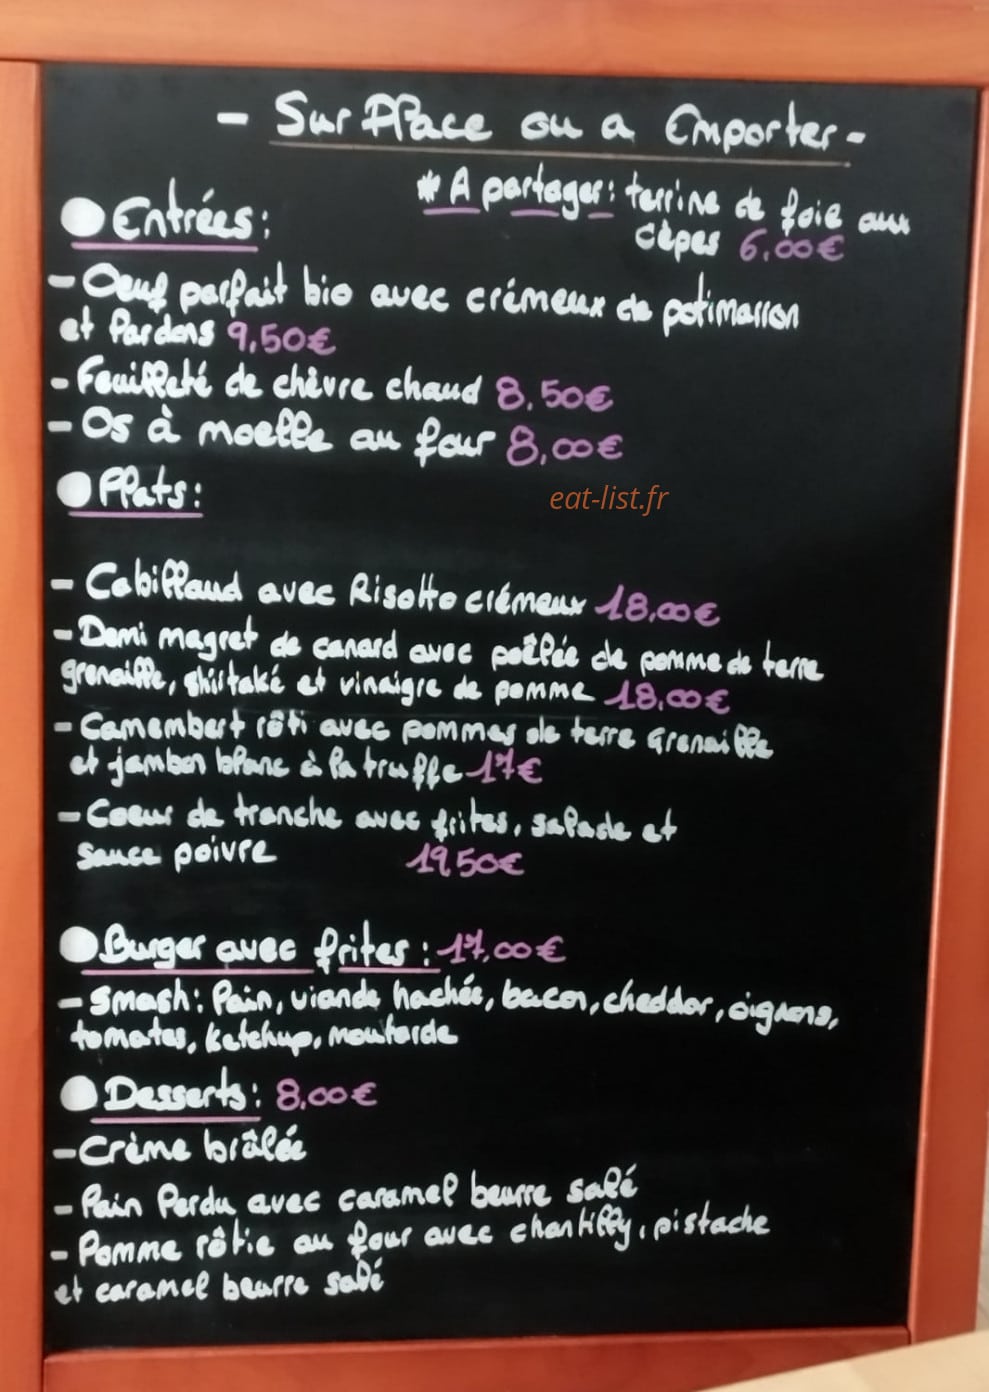 - Sur Place ou a Emporter -
* A partager: terrine de foie aux
cèpes 6,00€
Entrées:
- Oeuf parfait bio avec crémeux de potimarron
et Pardons 9,50€
- Feuilleté de chèvre chaud 8,50€
- Os à moelle au four 8,00€
Plats:
eat-list.fr
- Cabillaud avec Risotto crémeux 18,00€
- Demi magret de canard avec poêlée de pomme de terre
grenaille, shiitaké et vinaigre de pomme 18,00€
- Camembert rôti avec pommes de terre Grenaille
et jambon blanc à la truffe 17€
- Coeur de tranche avec frites, salade et
sauce poivre 19,50€
Burger avec frites: 17,00€
- Smash: Pain, viande hachée, bacon, cheddar, oignons,
tomates, Ketchup, moutarde
Desserts: 8,00€
- Crème brûlée
- Pain Perdu avec caramel beurre salé
- Pomme rôtie au four avec chantilly, pistache
et caramel beurre salé